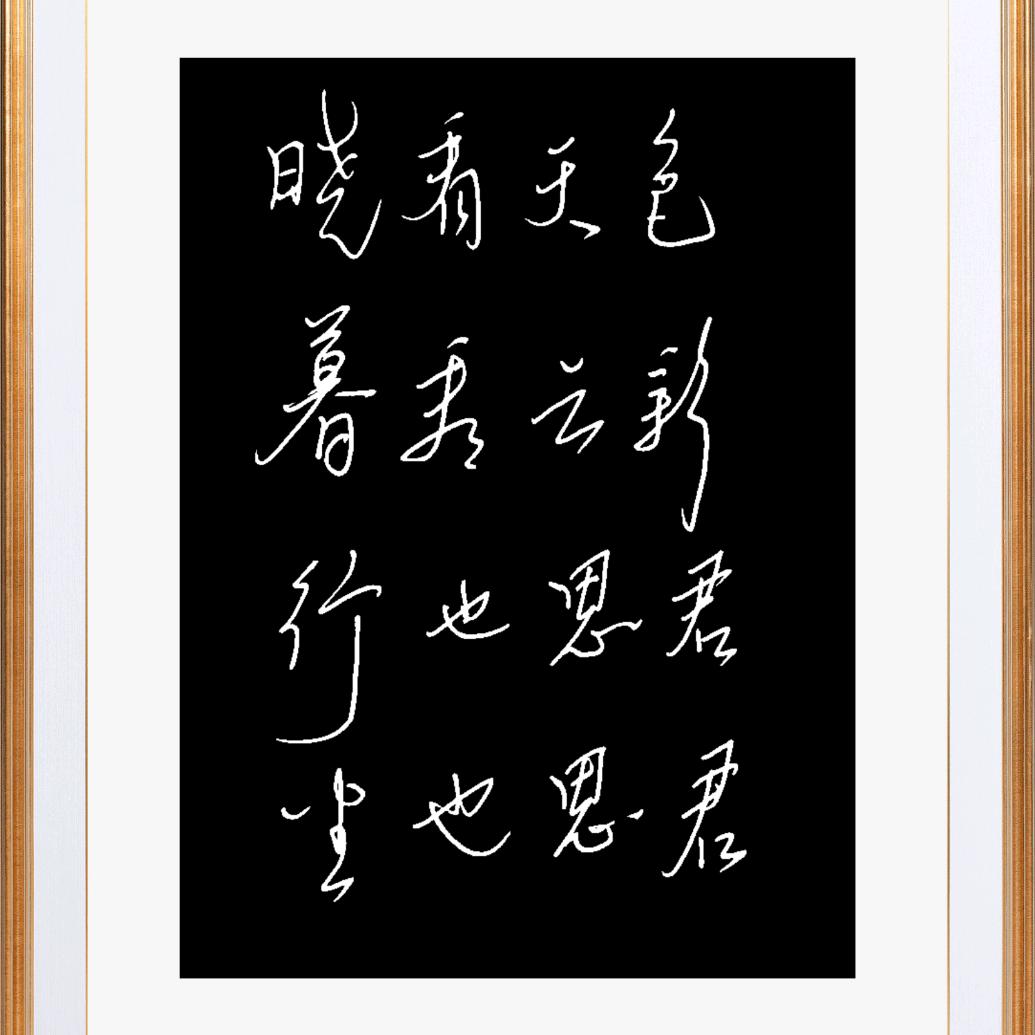 晓看天色
暮看云新
行也思君
坐也思君